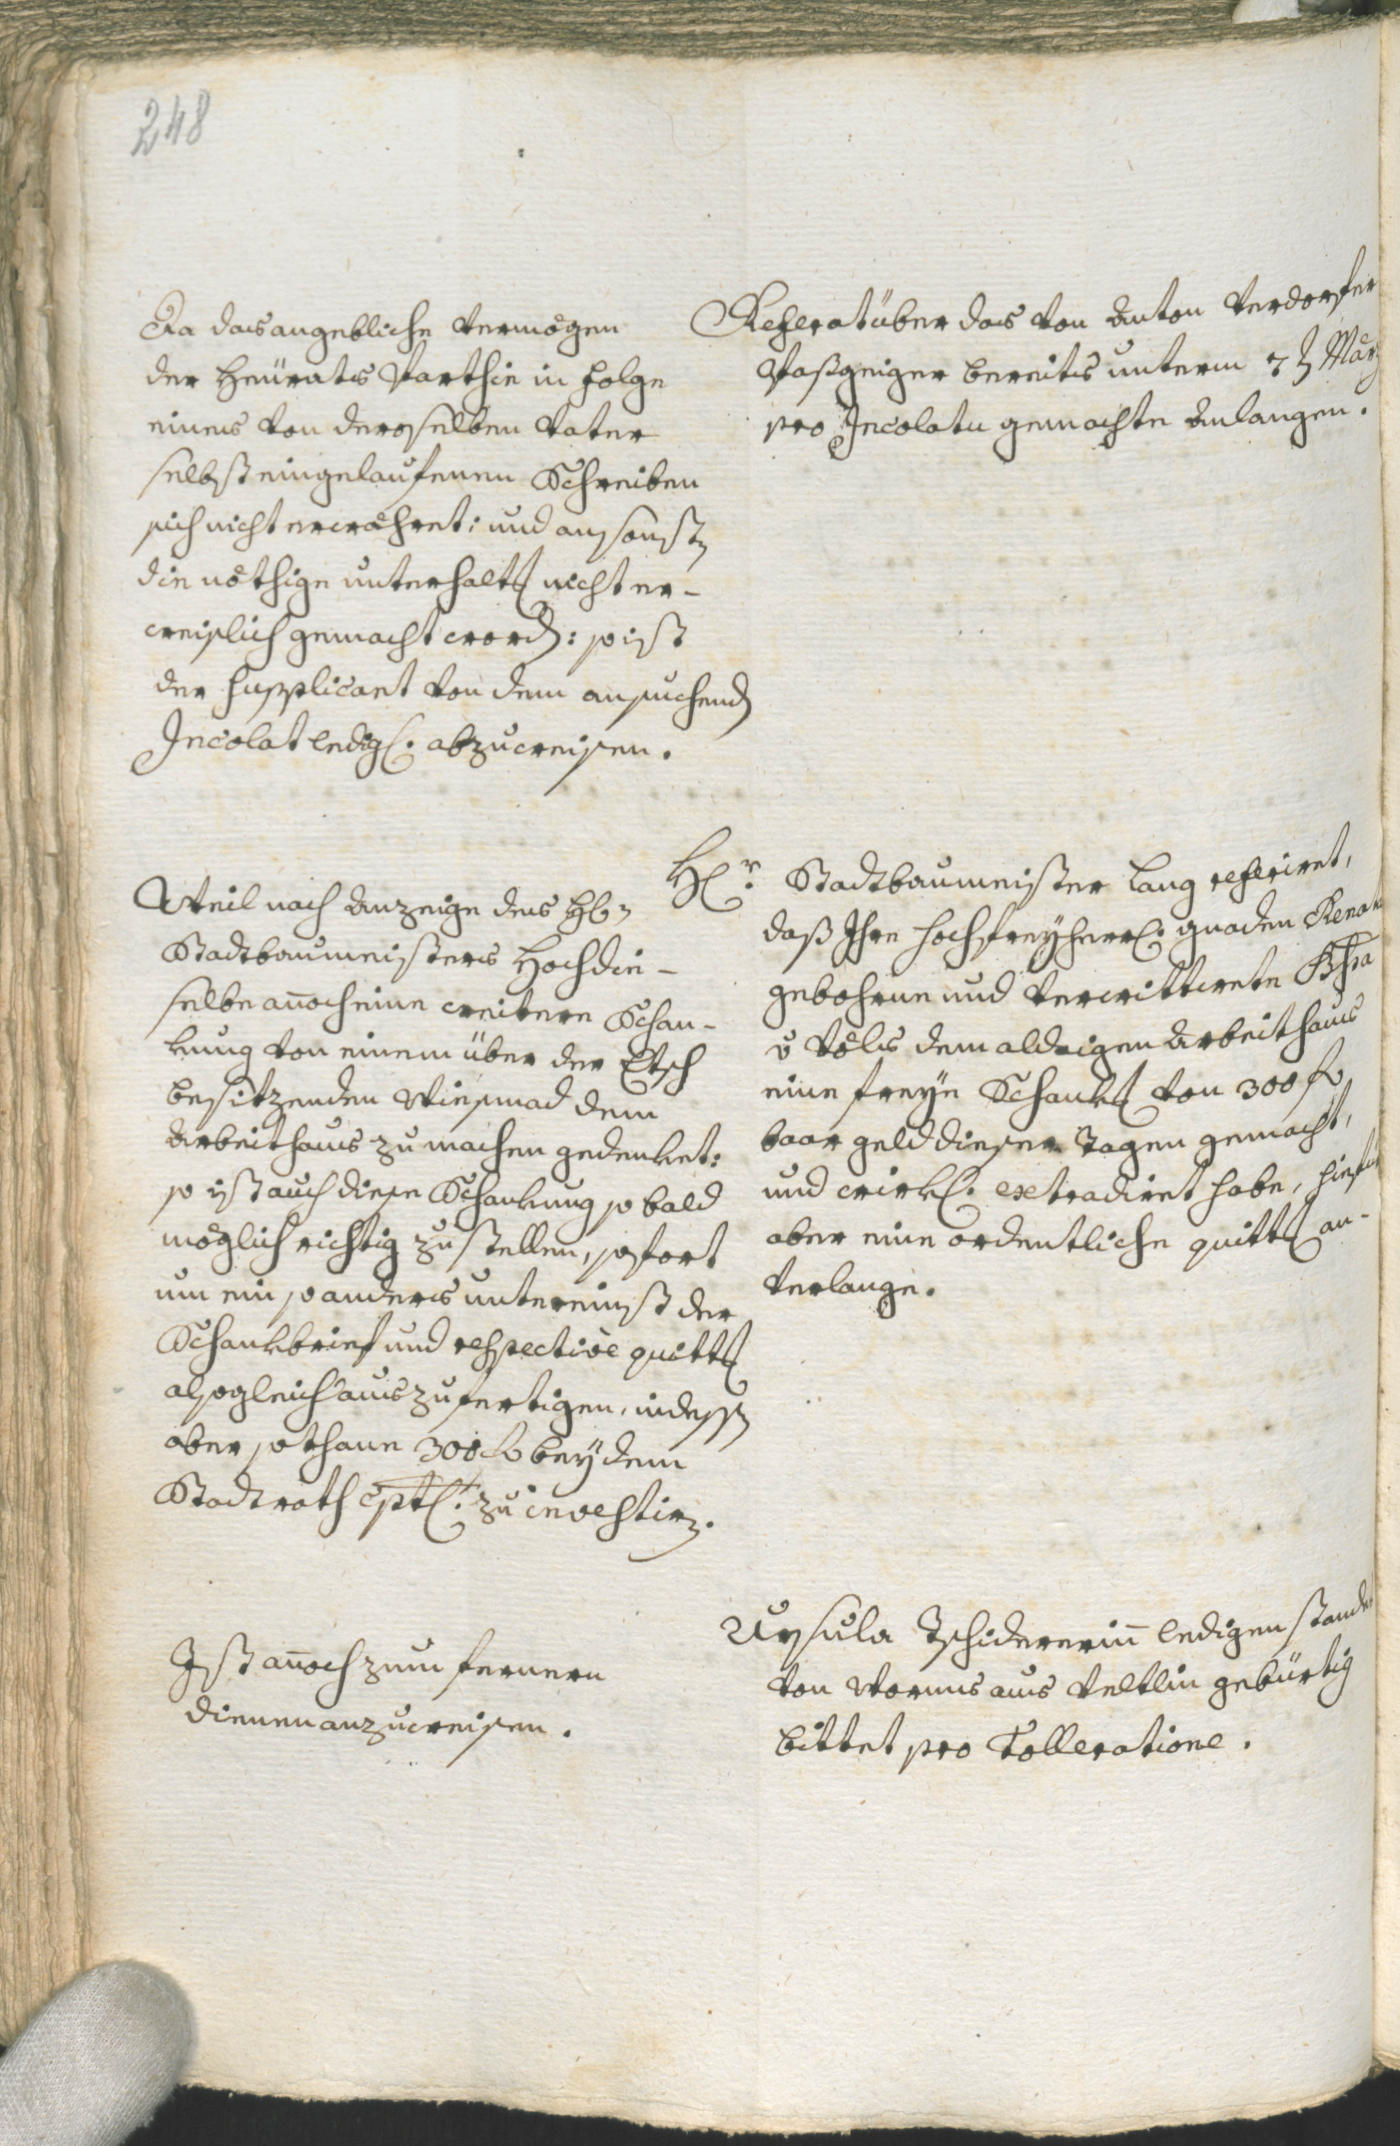 248
Da das angebliche Vermögen
der Heürats Parthie in Folge
eines von deroselben Vater
selbst eingelaufenen Schreiben
sich nicht erwähret: und ansonstn
die nöthige unterhaltg nicht er-
weislich gemacht word: so ist
der Supplicant von dem ansuchend
Incolat ledigl. abzuweisen.
Referat über das von Anton Verdorfer
Paßgeiger bereits unterm 7 März
pro Incolatu gemachte Anlangen.
Weil nach Anzeige des Hl:
Stadtbaumeisters Hochdie-
selbe annoch eine weitere Schan-
kung von einem über der Etsch
besitzenden Wiesmad dem
Arbeithaus zu machen gedenket:
so ist auch diese Schankung so bald
möglich richtig zustellen, sofort
um ein so anders untereinst der
Schankbrief und respective quittg
alsogleich auszufertigen, indessn
aber sothane 300 f bey dem
Stadtrath zu investirn.
Hr. Stadtbaumeister Lang referiret,
daß Ihre hochfreyherrl. Gnaden Renata
gebohrne und verwittwete
v Völs dem aldaigen Arbeithaus
eine freye Schankg von 300 f
baar geld dieser Tagen gemacht,
und wirkl. extradiret habe, hiefür
aber eine ordentliche quittg an-
verlange.
Ist annoch zum fernern
dienen anzuweisen.
Ursula Tschidererinn ledigen stands
von Worms aus Veltlin gebürtig
bittet pro Tolleratione.